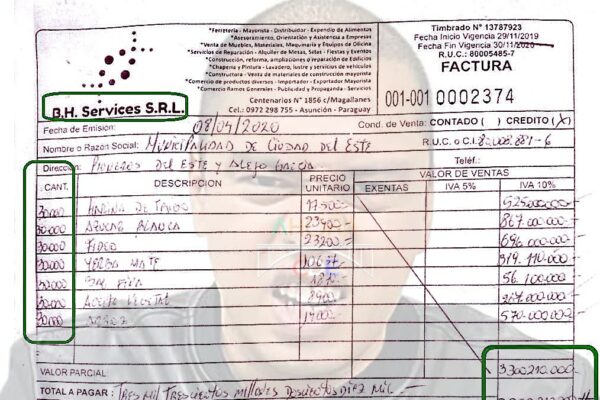 • Ferretería - Mayorista - Distribuidor - Expendio de Alimentos
•Asesoramiento, Orientación y Asistencia a Empresas
•Venta de Muebles, Materiales, Maquinaria y Equipos de Oficina
•Servicios de Reparación - Alquiler de Mesas, Sillas - Fiestas y Eventos
•Construcción, reforma, ampliaciones o reparación de Edificios
•Chapería y Pintura - Lavadero, lustre y servicios de vehículos
•Constructora - Venta de materiales de construcción mayorista
•Comercio de productos diversos - Importador - Exportador Mayorista
•Comercio Ramos Generales - Publicidad y Propaganda - Servicios
Centenarios N° 1856 c/Magallanes
Cel.: 0972 298 755 - Asunción - Paraguay
B.H. Services S.R.L.
Timbrado N° 13787923
Fecha Inicio Vigencia 29/11/2019
Fecha Fin Vigencia 30/11/2020
R.U.C.: 80005485-7
FACTURA
001-001 0002374
Fecha de Emisión: 08/04/2020 Cond. de Venta: CONTADO ( ) CREDITO (X)
Nombre o Razón Social: Municipalidad de Ciudad del Este R.U.C. o C.I.
Dirección: Pioneros del Este y Alejo Garcia Teléf.:
CANT. DESCRIPTION PRECIO UNITARIO VALOR DE VENTAS
EXENTAS IVA 5% IVA 10%
30.000 Harina de Trigo 17500.- 525.000.000.-
30.000 Azucar Blanca
30.000 Fideo 23200.- 696.000.000.-
30.000 Yerba Mate 10637.- 319.110.000.-
30.000 Sal Fina 1870.- 56.100.000.-
30.000 Aceite Vegetal 8900.- 267.000.000.-
30.000 Arroz 19000.- 570.000.000.-
VALOR PARCIAL: 3300.210.000.-
TOTAL A PAGAR: Tres mil Trescientos Millones Doscientos Diez Mil.-